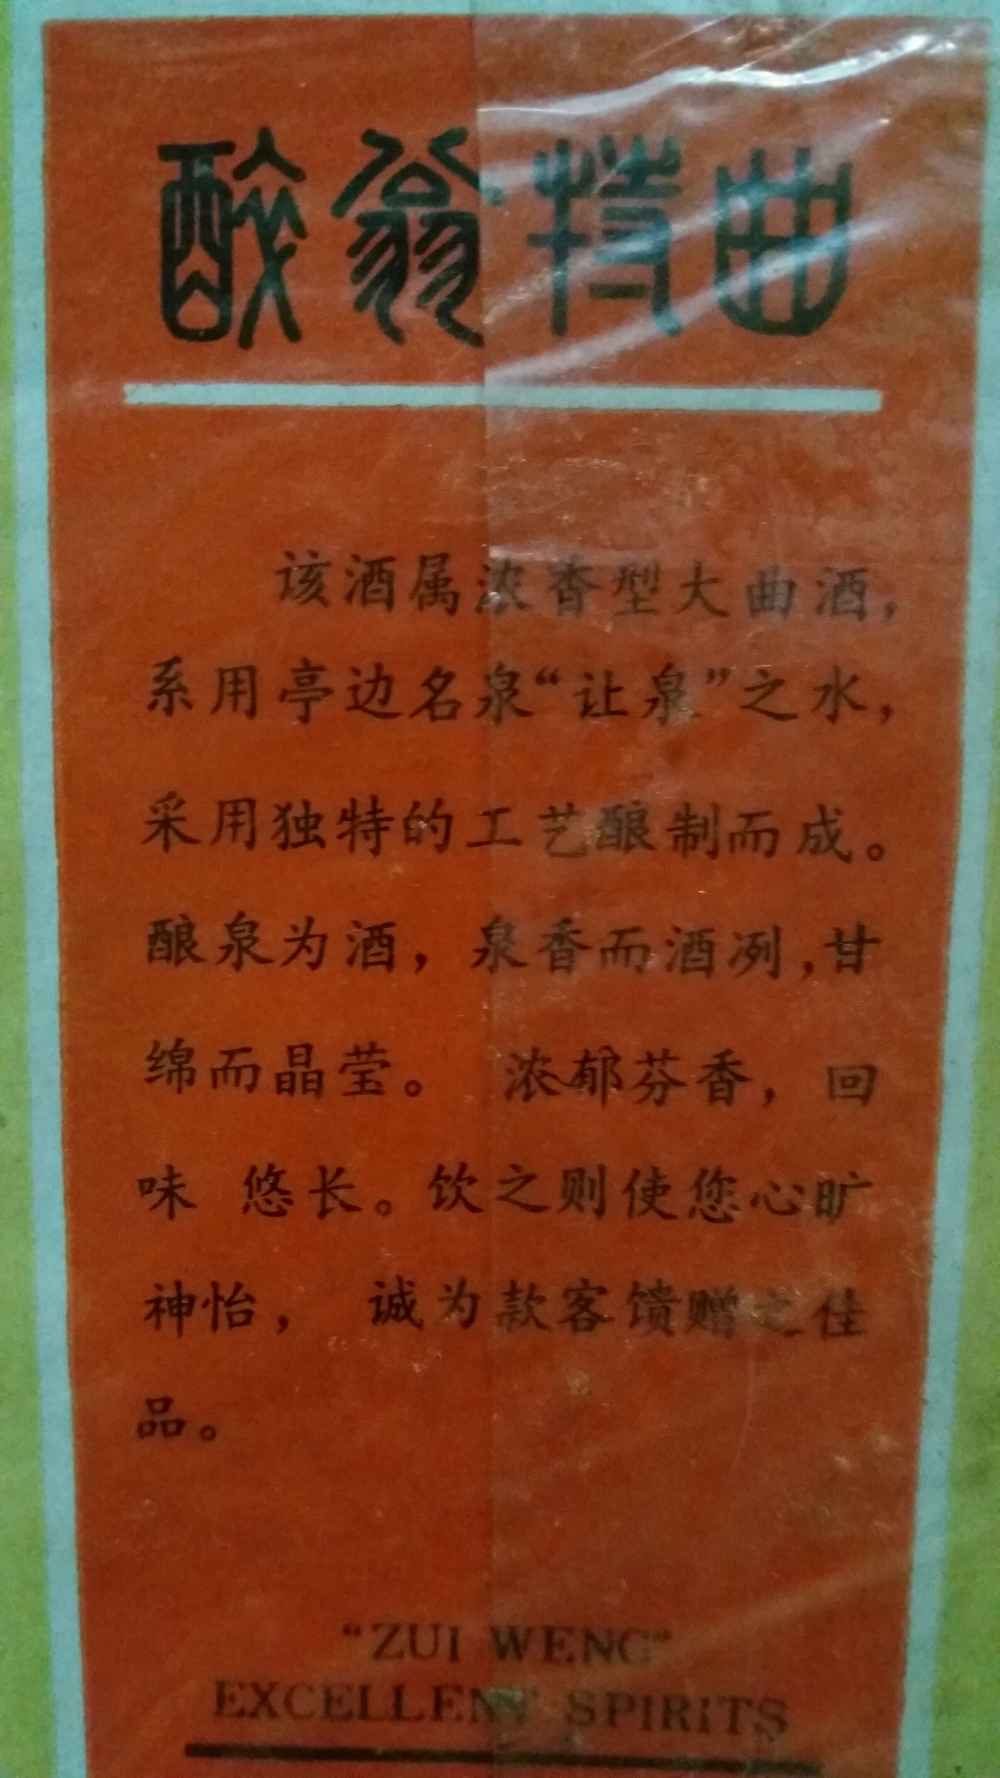 醉翁特曲
该酒属浓香型大曲酒，
系用亭边名泉“让泉”之水，
采用独特的工艺酿制而成。
酿泉为酒，泉香而酒冽，甘
绵而晶莹。 浓郁芬香，回
味 悠长。饮之则使您心旷
神怡， 诚为款客馈赠之佳
品。
“ZUI WENG”
EXCELLENT SPIRITS